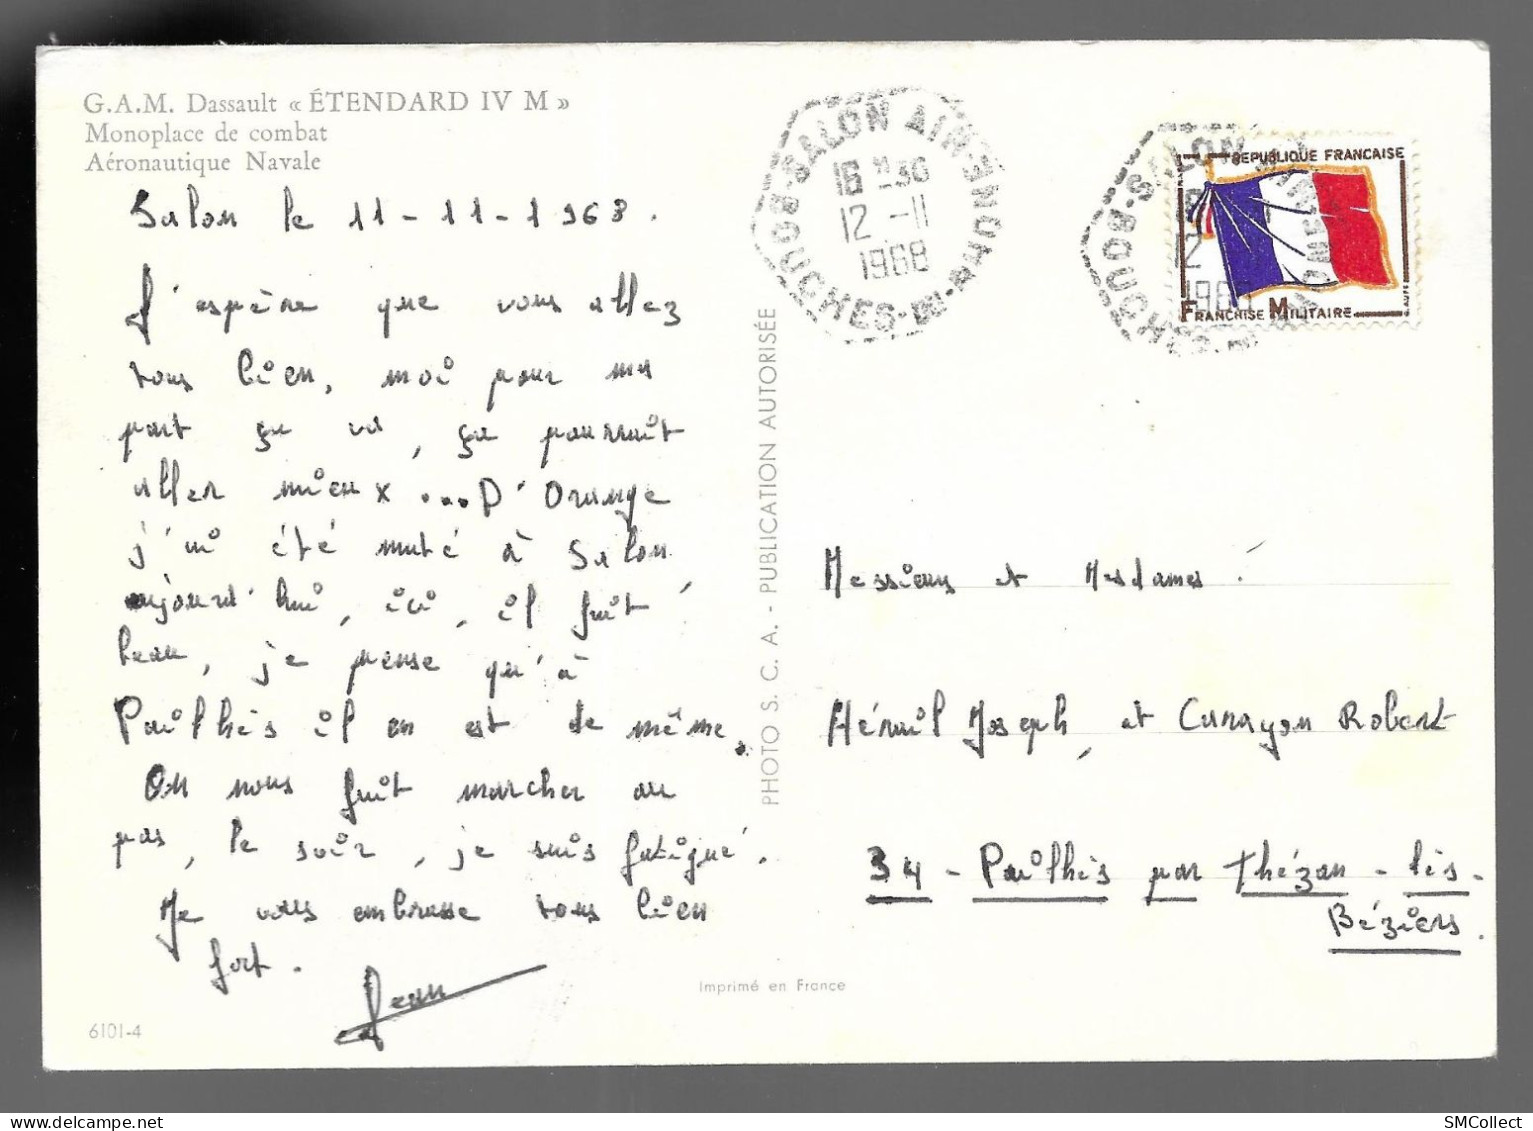 G.A.M. Dassault « ÉTENDARD IV M »
Monoplace de combat
Aéronautique Navale
Salon le 11-11-1968.
J'espère que vous allez
tous bien, moi pour ma
part ça va, ça pourrait
aller mieux ... D'Orange
j'ai été muté à Salon
aujourd'hui, ici, il fait
beau, je pense qu'à
Pailhès il en est de même.
On nous fait marcher au
pas, le soir, je suis fatigué.
Je vous embrasse tous bien
fort.
Jean
6101-4
PHOTO S. C. A. - PUBLICATION AUTORISÉE
Imprimé en France
SALON AIR-BOUCHES-DU-RHONE
16 H -30
12 -11
1968
REPUBLIQUE FRANCAISE
FRANCHISE MILITAIRE
Messieurs et Mesdames.
Hérail Joseph, et Canayon Robert
34 - Pailhès par Thézan-lès-
Béziers.
SMCollect